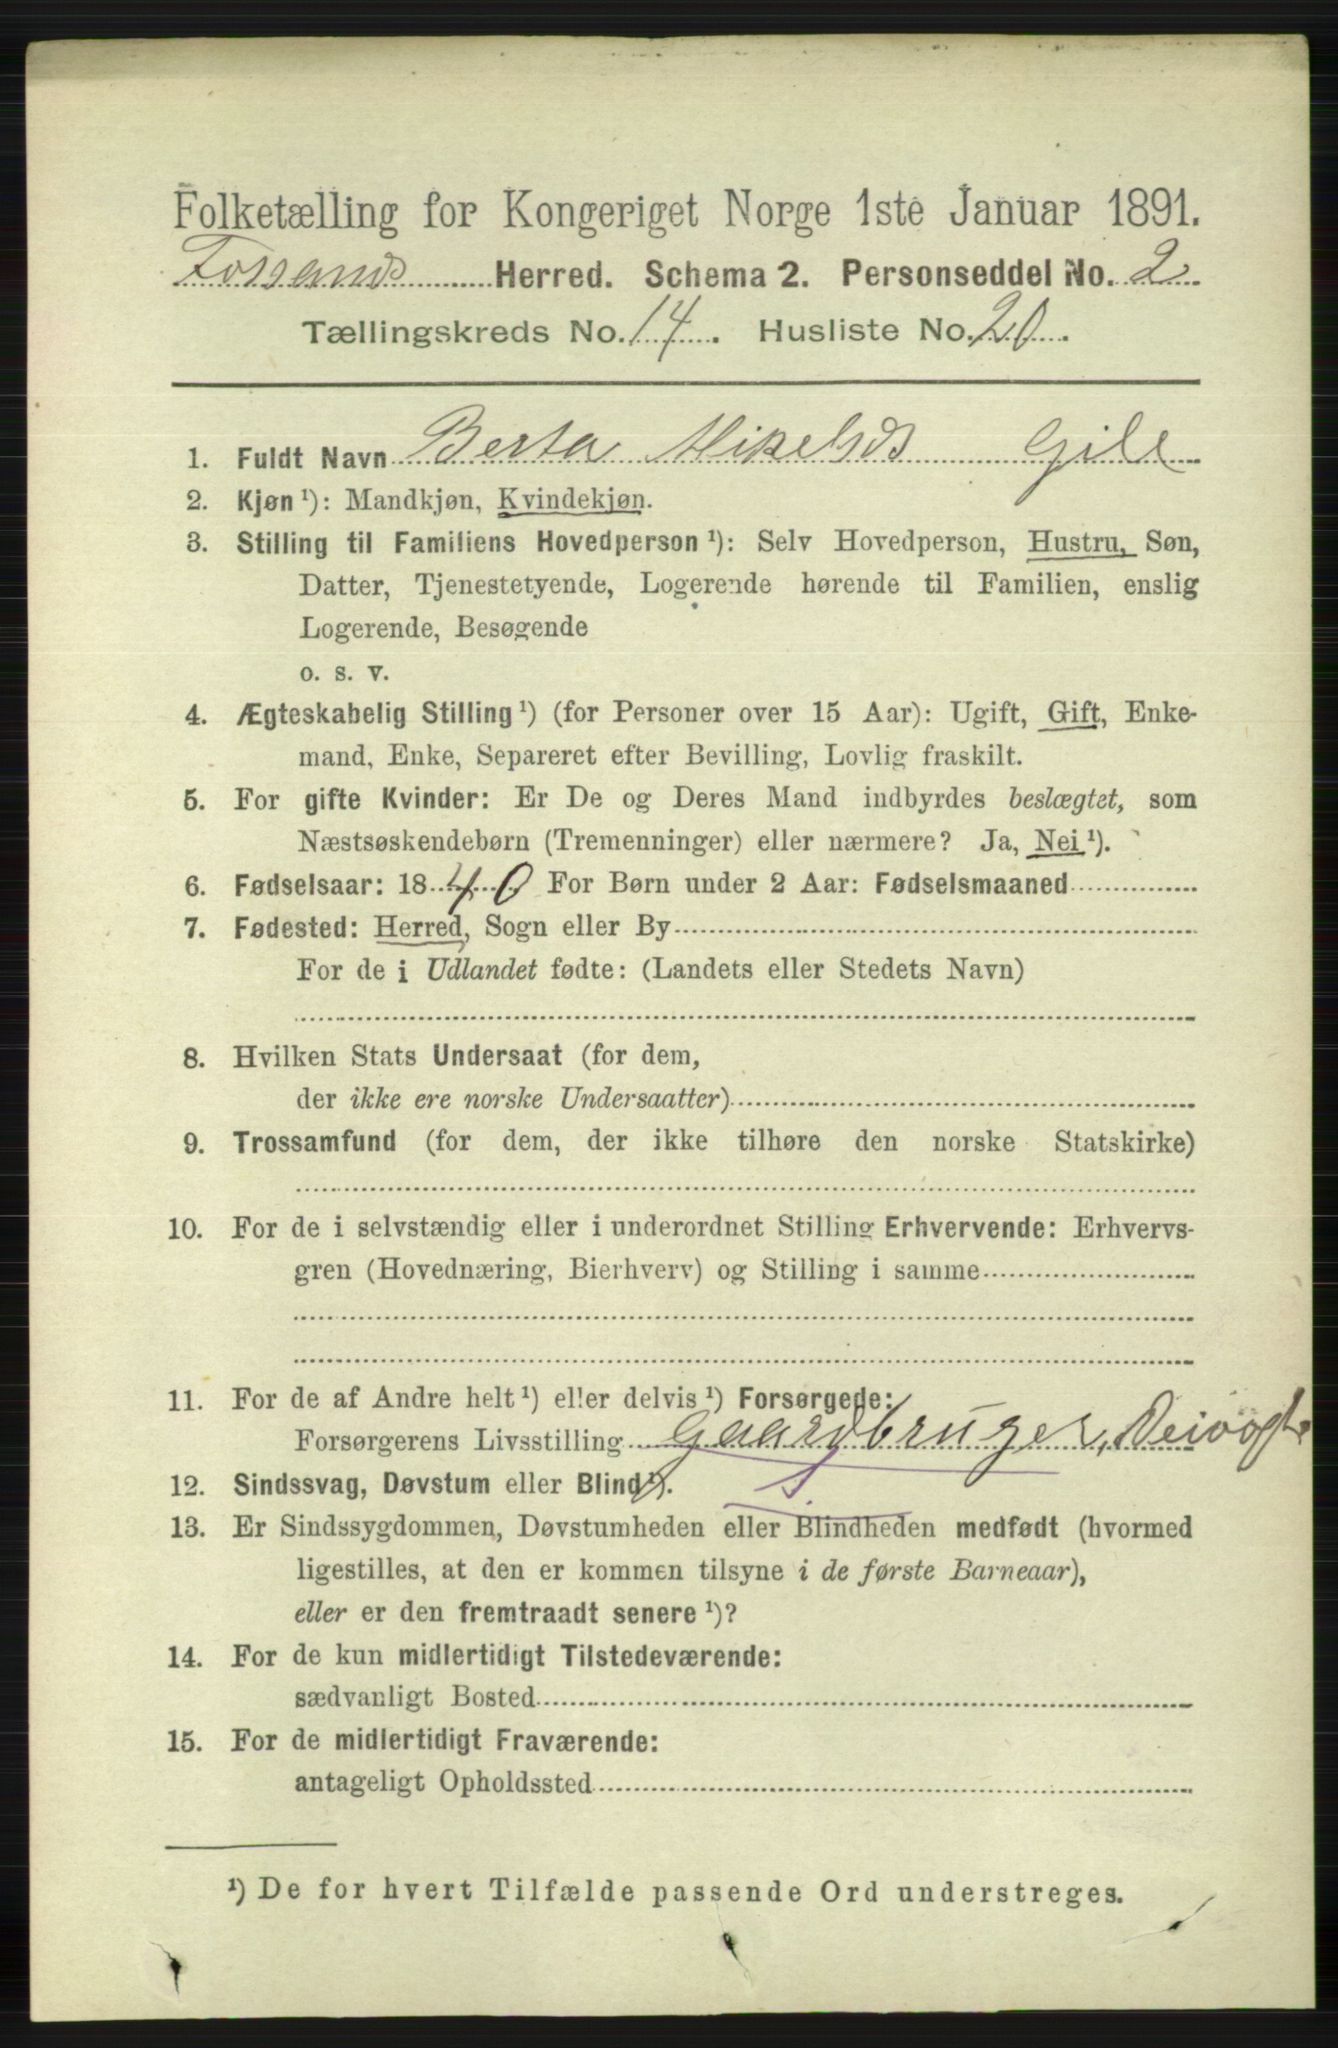 Folketælling for Kongeriget Norge 1ste Januar 1891.
Fossands Herred. Schema 2. Personseddel No. 2
Tællingskreds No. 14. Husliste No. 20.
1. Fuldt Navn Berta Mikelsds Gile
2. Kjøn ¹): Mandkjøn, Kvindekjøn.
3. Stilling til Familiens Hovedperson ¹): Selv Hovedperson, Hustru, Søn,
Datter, Tjenestetyende, Logerende hørende til Familien, enslig
Logerende, Besøgende
o. s. v.
4. Ægteskabelig Stilling ¹) (for Personer over 15 Aar): Ugift, Gift, Enke-
mand, Enke, Separeret efter Bevilling, Lovlig fraskilt.
5. For gifte Kvinder: Er De og Deres Mand indbyrdes beslægtet, som
Næstsøskendebørn (Tremenninger) eller nærmere? Ja, Nei ¹).
6. Fødselsaar: 1840 For Børn under 2 Aar: Fødselsmaaned
7. Fødested: Herred, Sogn eller By
For de i Udlandet fødte: (Landets eller Stedets Navn)
8. Hvilken Stats Undersaat (for dem,
der ikke ere norske Undersaatter)
9. Trossamfund (for dem, der ikke tilhøre den norske Statskirke)
10. For de i selvstændig eller i underordnet Stilling Erhvervende: Erhvervs-
gren (Hovednæring, Bierhverv) og Stilling i samme
11. For de af Andre helt ¹) eller delvis ¹) Forsørgede:
Forsørgerens Livsstilling Gaardbruger,
12. Sindssvag, Døvstum eller Blind ¹).
13. Er Sindssygdommen, Døvstumheden eller Blindheden medfødt (hvormed
ligestilles, at den er kommen tilsyne i de første Barneaar),
eller er den fremtraadt senere ¹)?
14. For de kun midlertidigt Tilstedeværende:
sædvanligt Bosted
15. For de midlertidigt Fraværende:
antageligt Opholdssted
¹) De for hvert Tilfælde passende Ord understreges.